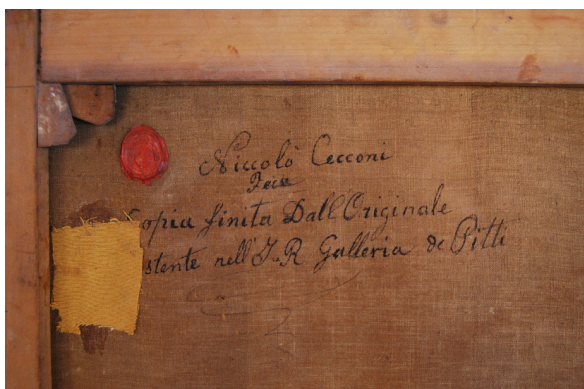 Niccolò Cecconi
Fece
opia finita Dall'Originale
stente nell'I. R Galleria de Pitti